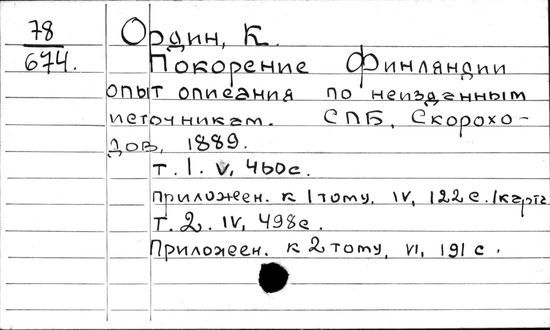 78
674.
Ордин, К.
Покорение Финляндии
опыт описания по неизданным
источникам. СПБ, Скорохо-
дов, 1889.
т. I. V, 460с.
приложен. к I тому, IV, 122с. 1 карта
т. 2. IV, 498с.
Приложен. к 2 тому, VI, 191 с.